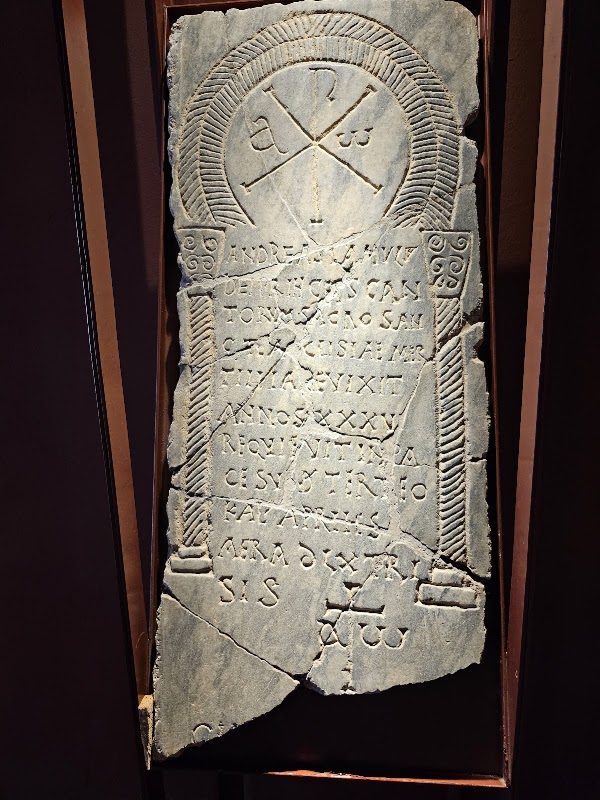 α ω
ANDREAS FAMVL
DEI PRINCEPS CAN
TORVM SACROSAN
CTE AECLISIAE MER
TILLIANE VIXIT
ANNOS XXXVI
REQVIEVIT IN PA
CE SVB D TERTIO
KAL APRILES
AERA DLX TRI
SIS
α ω